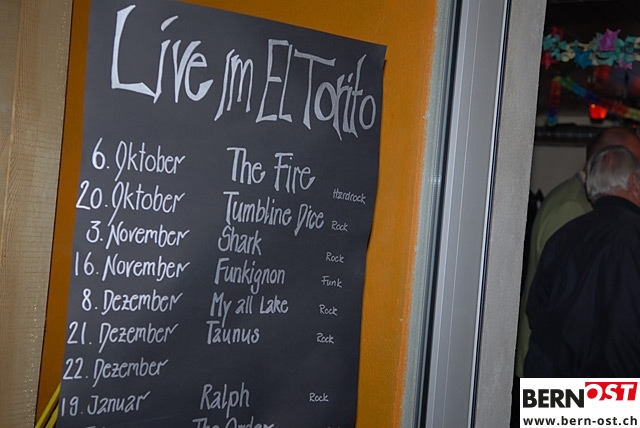 Live im El Torito
6. Oktober The Fire Hardrock
20. Oktober Tumbline Dice Rock
3. November Shark Rock
16. November Funkignon Funk
8. Dezember My all Lake Rock
21. Dezember Taunus Rock
22. Dezember
19. Januar Ralph Rock
The Order
BERNOST
www.bern-ost.ch